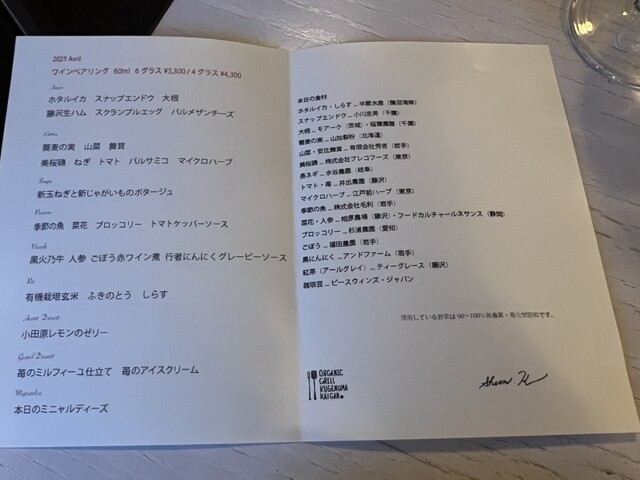 2025 Avril
ワインペアリング 60ml 6グラス ¥5,300 / 4グラス ¥4,300
ホタルイカ スナップエンドウ 大根
藤沢生ハム スクランブルエッグ パルメザンチーズ
Entrée
蕎麦の実 山菜 舞茸
美桜鶏 ねぎ トマト バルサミコ マイクロハーブ
Soupe
新玉ねぎと新じゃがいものポタージュ
Poisson
季節の魚 菜花 ブロッコリー トマトケッパーソース
Viande
黒火乃牛 人参 ごぼう赤ワイン煮 行者にんにくグレービーソース
Riz
有機栽培玄米 ふきのとう しらす
Avant Dessert
小田原レモンのゼリー
Grand Dessert
苺のミルフィーユ仕立て 苺のアイスクリーム
Mignardise
本日のミニャルディーズ
本日の食材
ホタルイカ・しらす _ 半蔵水産(鵠沼海岸)
スナップエンドウ _ 小川農房(千葉)
大根 _ モアーク(茨城)・桜葉農園(千葉)
蕎麦の実 _ 山加製粉(北海道)
山菜・安比舞茸 _ 有限会社秀吉(岩手)
美桜鶏 _ 株式会社プレコフーズ(東京)
長ネギ _ 水谷農園(岐阜)
トマト・苺 _ 井出農園(藤沢)
マイクロハーブ _ 江戸前ハーブ(東京)
季節の魚 _ 株式会社毛利(岩手)
菜花・人参 _ 相原農場(藤沢)・フードカルチャールネサンス(静岡)
ブロッコリー _ 杉浦農園(愛知)
ごぼう _ 福田農園(岩手)
黒にんにく _ アンドファーム(岩手)
紅茶(アールグレイ) _ ティーグレース(藤沢)
珈琲豆 _ ピースウィンズ・ジャパン
使用している野菜は90〜100%無農薬・無化学肥料です。
ORGANIC
GRILL
KUGENUMA
KAIGAN